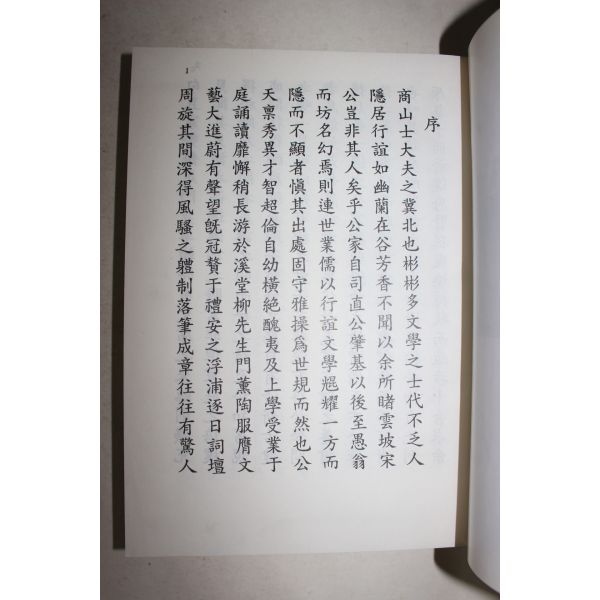 序
商山士大夫之冀北也彬彬多文學之士代不乏人
隱居行誼如幽蘭在谷芳香不聞以余所睹雲坡宋
公豈非其人矣乎公家自司直公肇基以後至愚翁
而坊名幻焉則連世業儒以行誼文學焜耀一方而
隱而不顯者愼其出處固守雅操爲世規而然也公
天稟秀異才智超倫自幼橫絶醜夷及上學受業于
庭誦讀靡懈稍長游於溪堂柳先生門薰陶服膺文
藝大進蔚有聲望旣冠贅于禮安之浮浦逐日詞壇
周旋其間深得風騷之軆制落筆成章往往有驚人
1